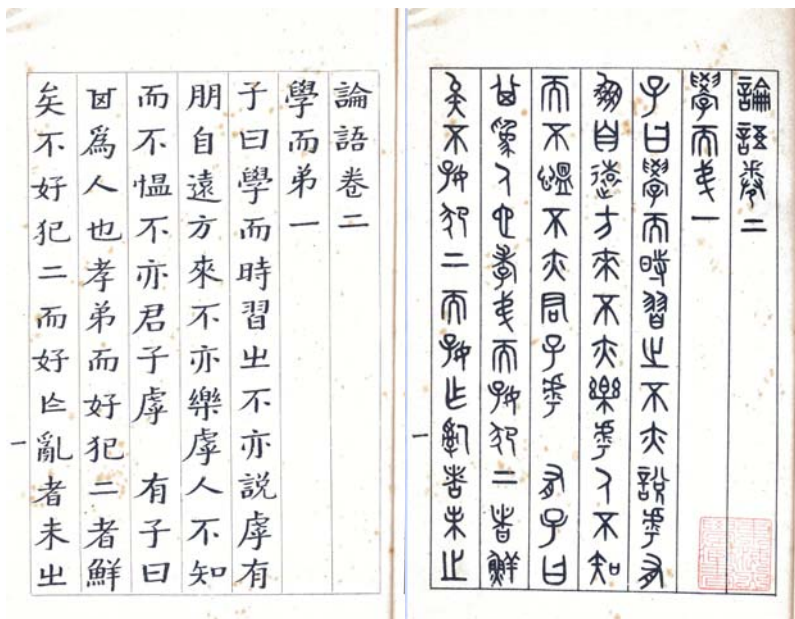 論語卷二
學而弟一
子曰學而時習㞢不亦説虖有
朋自遠方來不亦樂虖人不知
而不愠不亦君子虖 有子曰
爲人也孝弟而好犯二者鮮
矣不好犯二而好亂者未㞢
一
論語卷二
學而弟一
子曰學而時習㞢不亦説虖有
朋自遠方來不亦樂虖人不知
而不愠不亦君子虖 有子曰
爲人也孝弟而好犯二者鮮
矣不好犯二而好亂者未㞢
一